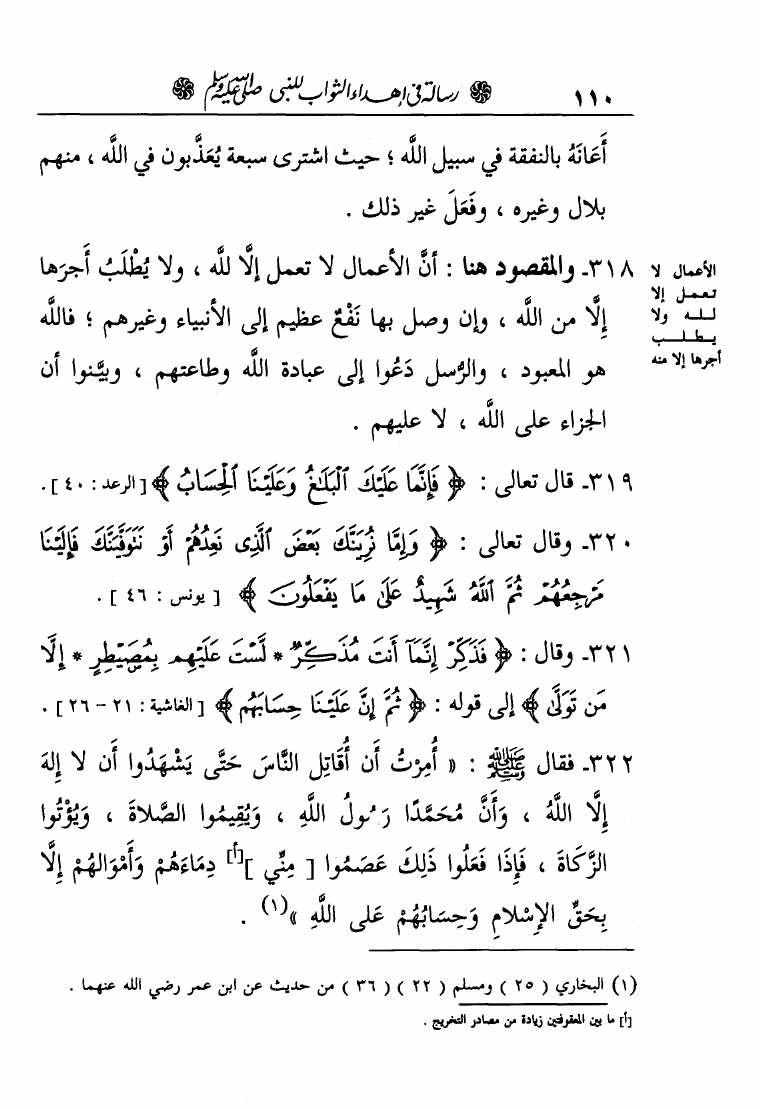 ١١٠ ۞ رسالة في إهداء الثواب للنبي صلى الله عليه وسلم ۞
أَعَانَهُ بالنفقة في سبيل اللَّه ؛ حيث اشترى سبعة يُعَذَّبون في اللَّه ، منهم
بلال وغيره ، وفَعَلَ غير ذلك .
٣١٨ـ والمقصود هنا : أنَّ الأعمال لا تعمل إلَّا للَّه ، ولا يُطْلَبُ أجرَها
إلَّا من اللَّه ، وإن وصل بها نَفْعٌ عظيم إلى الأنبياء وغيرهم ؛ فاللَّه
هو المعبود ، والرُّسل دَعُوا إلى عبادة اللَّه وطاعتهم ، وبيَّنوا أن
الجزاء على اللَّه ، لا عليهم .
الأعمال لا
تعمل إلا
لله ولا
يطلب
أجرها إلا منه
٣١٩ـ قال تعالى : ﴿ فَإِنَّمَا عَلَيْكَ ٱلْبَلَٰغُ وَعَلَيْنَا ٱلْحِسَابُ ﴾ [ الرعد : ٤٠ ] .
٣٢٠ـ وقال تعالى : ﴿ وَإِمَّا نُرِيَنَّكَ بَعْضَ ٱلَّذِى نَعِدُهُمْ أَوْ نَتَوَفَّيَنَّكَ فَإِلَيْنَا
مَرْجِعُهُمْ ثُمَّ ٱللَّهُ شَهِيدٌ عَلَىٰ مَا يَفْعَلُونَ ﴾ [ يونس : ٤٦ ] .
٣٢١ـ وقال : ﴿ فَذَكِّرْ إِنَّمَآ أَنتَ مُذَكِّرٌ * لَّسْتَ عَلَيْهِم بِمُصَيْطِرٍ * إِلَّا
مَن تَوَلَّىٰ ﴾ إلى قوله : ﴿ ثُمَّ إِنَّ عَلَيْنَا حِسَابَهُم ﴾ [ الغاشية : ٢١ - ٢٦ ] .
٣٢٢ـ فقال ﷺ : « أُمِرْتُ أَن أُقَاتِل النَّاسَ حَتَّى يَشْهَدُوا أَن لا إِلهَ
إِلَّا اللَّهُ ، وَأَنَّ مُحَمَّدًا رَسُولُ اللَّهِ ، وَيُقِيمُوا الصَّلاةَ ، وَيُؤْتُوا
الزَّكَاةَ ، فَإِذَا فَعَلُوا ذَلِكَ عَصَمُوا [ مِنِّي ][أ] دِمَاءَهُمْ وَأَمْوَالهُمْ إلَّا
بِحَقِّ الإِسْلامِ وَحِسَابُهُمْ عَلى اللَّهِ »(١) .
(١) البخاري ( ٢٥ ) ومسلم ( ٢٢ ) ( ٣٦ ) من حديث عن ابن عمر رضي الله عنهما .
[أ] ما بين المعقوفتين زيادة من مصادر التخريج .